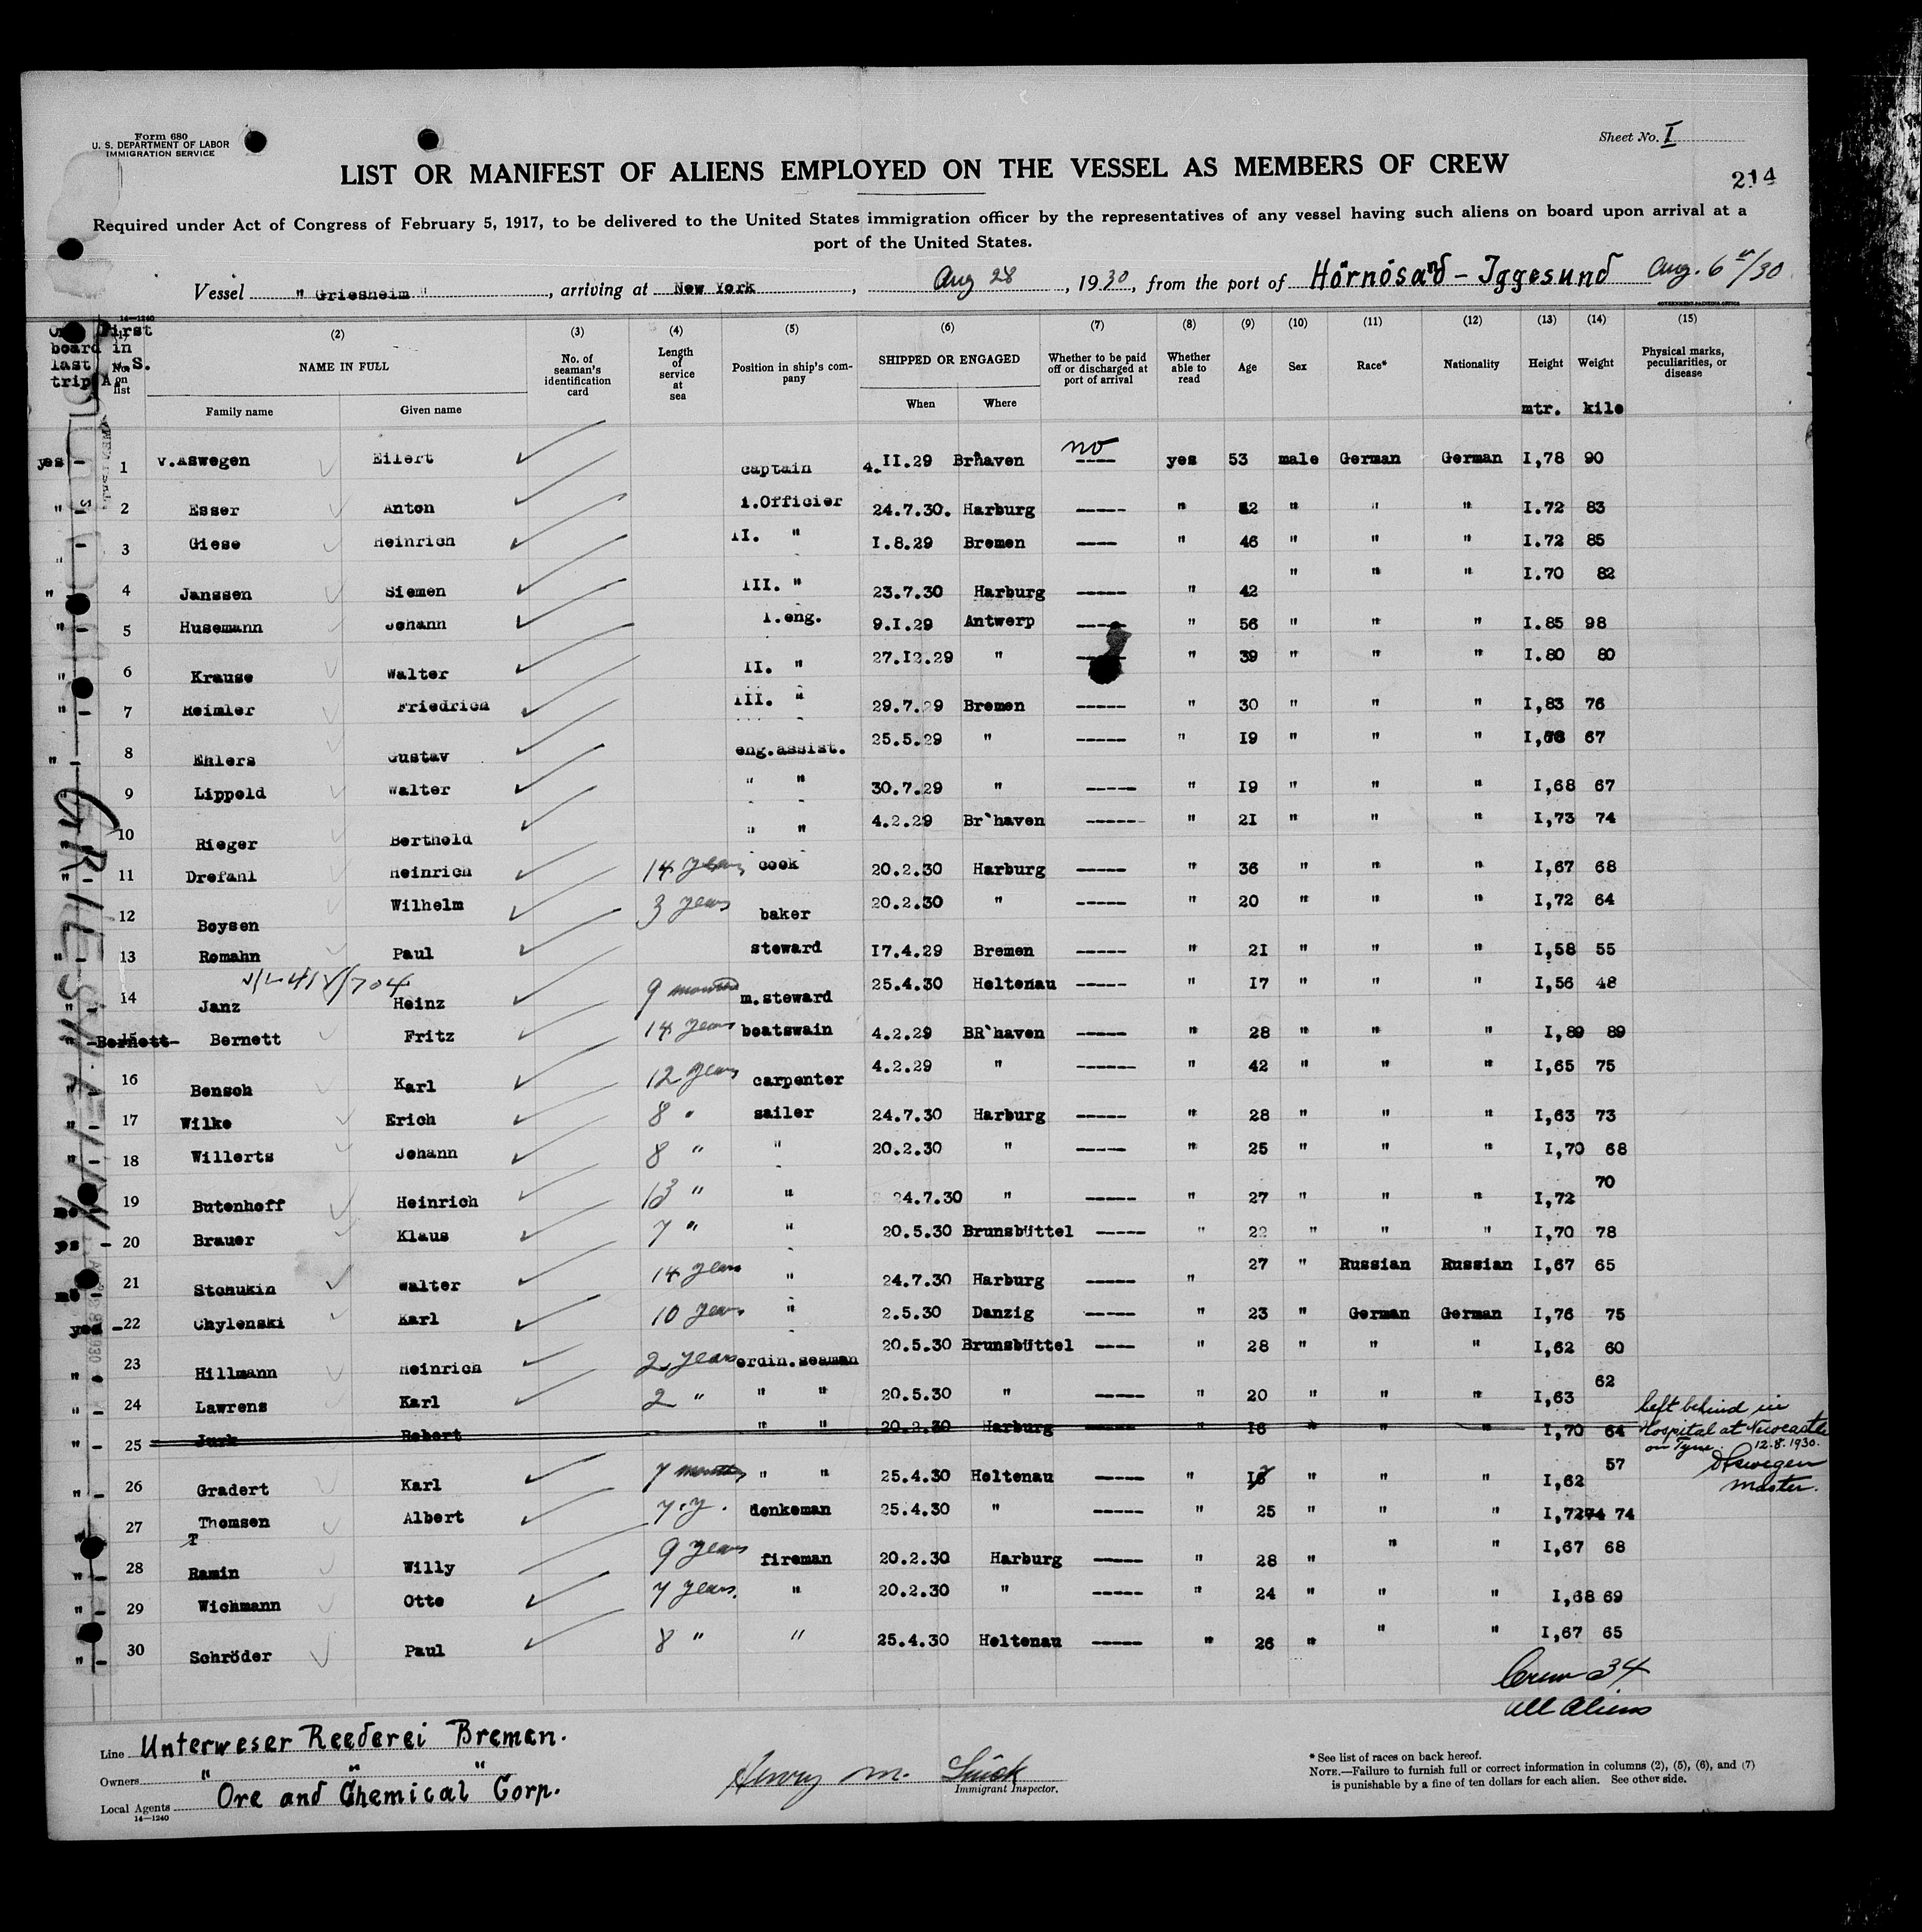 Form 680
U. S. DEPARTMENT OF LABOR
IMMIGRATION SERVICE
Sheet No. I
214
LIST OR MANIFEST OF ALIENS EMPLOYED ON THE VESSEL AS MEMBERS OF CREW
Required under Act of Congress of February 5, 1917, to be delivered to the United States immigration officer by the representatives of any vessel having such aliens on board upon arrival at a
port of the United States.
Vessel "Griesheim", arriving at New York, Aug 28, 1930, from the port of Hörnösand - Iggesund Aug. 6th/30
14—1240
GOVERNMENT PRINTING OFFICE
On board last trip
First in U.S.A.
(1) No. on list
(2) NAME IN FULL
Family name Given name
(3) No. of seaman's identification card
(4) Length of service at sea
(5) Position in ship's company
(6) SHIPPED OR ENGAGED
When Where
(7) Whether to be paid off or discharged at port of arrival
(8) Whether able to read
(9) Age
(10) Sex
(11) Race*
(12) Nationality
(13) Height mtr.
(14) Weight kilo
(15) Physical marks, peculiarities, or disease
yes - 1 v.Aswegen Eilert captain 4.II.29 Brhaven no ---- yes 53 male German German I,78 90
" - 2 Esser Anton I.Officier 24.7.30. Harburg ----- " 42 " " " I.72 83
" - 3 Giese Heinrich II. " I.8.29 Bremen ---- " 46 " " " I.72 85
" 4 Janssen Siemen III. " 23.7.30 Harburg ----- " 42 " " " I.70 82
" - 5 Husemann Johann I.eng. 9.I.29 Antwerp ----- " 56 " " " I.85 98
" 6 Krause Walter II. " 27.I2.29 " ----- " 39 " " " I.80 80
" - 7 Reimler Friedrich III. " 29.7.29 Bremen ----- " 30 " " " I,83 76
" - 8 Ehlers Gustav eng.assist. 25.5.29 " ----- " I9 " " " I, 67
9 Lippold Walter " " 30.7.29 " ----- " I9 " " " I,68 67
10 Rieger Berthold " " 4.2.29 Br`haven ------ " 2I " " " I,73 74
" - 11 Drefahl Heinrich 14 years cook 20.2.30 Harburg ----- " 36 " " " I,67 68
12 Boysen Wilhelm 3 years baker 20.2.30 " ----- " 20 " " " I,72 64
" - 13 Romahn Paul steward I7.4.29 Bremen ----- " 2I " " " I,58 55
" 14 Janz Heinz 9 months m.steward 25.4.30 Holtenau ----- " I7 " " " I,56 48
" -Bernett- 15 Bernett Fritz 14 years boatswain 4.2.29 BR`haven ----- " 28 " " " I,89 89
" 16 Bensch Karl 12 years carpenter 4.2.29 " ----- " 42 " " " I,65 75
" - 17 Wilke Erich 8 " sailor 24.7.30 Harburg ----- " 28 " " " I,63 73
" - 18 Willerts Johann 8 " " 20.2.30 " ----- " 25 " " " I,70 68
no 19 Butenhoff Heinrich 13 " " 24.7.30 " ----- " 27 " " " I,72 70
- 20 Brauer Klaus 7 " " 20.5.30 Brunsbüttel ----- " 22 " " " I,70 78
21 Stchukin Walter 14 years " 24.7.30 Harburg ----- " 27 " Russian Russian I,67 65
yes - 22 Chylenski Karl 10 years " 2.5.30 Danzig ----- " 23 " German German I,76 75
" - 23 Hillmann Heinrich 2 years ordin.seaman 20.5.30 Brunsbüttel ---- " 28 " " " I,62 60
" - 24 Lawrens Karl 2 " " " 20.5.30 " ----- " 20 " " " I,63 62
" - 25 Jurk Robert " " 20.2.30 Harburg ----- " I6 " " " I,70 64 left behind in Hospital at Newcastle on Tyne. 12.8.1930. Aswegen Master.
" - 26 Gradert Karl 7 months " " 25.4.30 Holtenau ----- " 17 " " " I,62 57
27 Thomsen Albert 7.y. donkeman 25.4.30 " ----- " 25 " " " I,7274 74
T
" - 28 Ramin Willy 9 years fireman 20.2.30 Harburg ----- " 28 " " " I,67 68
" - 29 Wichmann Otto 7 years. " 20.2.30 " ----- " 24 " " " I,68 69
" - 30 Schröder Paul 8 " " 25.4.30 Holtenau ----- " 26 " " " I,67 65
GRIESHEIM
Crew 34
all Aliens
Line Unterweser Reederei Bremen.
Owners " " "
Local Agents Ore and Chemical Corp.
14—1240
Henry M.
Immigrant Inspector.
* See list of races on back hereof.
NOTE.—Failure to furnish full or correct information in columns (2), (5), (6), and (7)
is punishable by a fine of ten dollars for each alien. See other side.